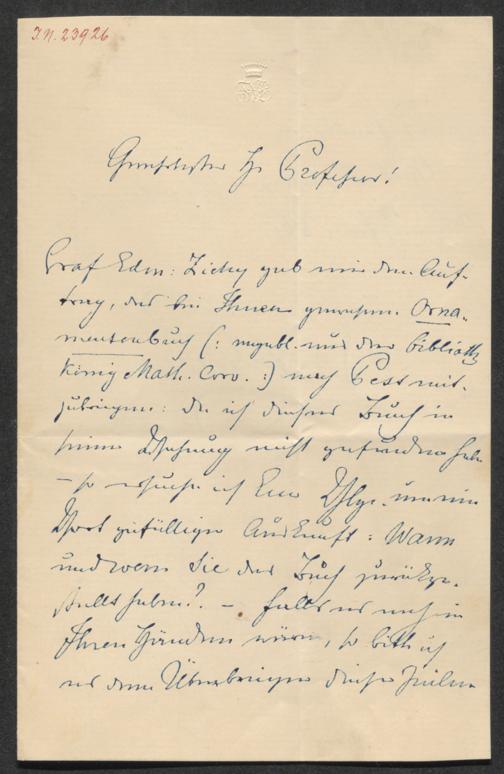 I.N. 23926
Geehrtester Hr Professor!
Graf Edm: Zichy gab mir den Auf-
trag, das bei Ihnen gewesene Orna-
mentenbuch (: angebl. aus der Biblioth.
König Math. Corv. :) nach Pest mit-
zubringen: da ich dieses Buch in
seiner Wohnung nicht gefunden habe
– so ersuche ich Euer Wohlge. um ein
Wort gefälliger Auskunft: Wann
und wem Sie das Buch zurückge-
stellt haben? – falls es noch in
Ihren Händen wäre, so bitte ich
es dem Überbringer dieser Zeilen